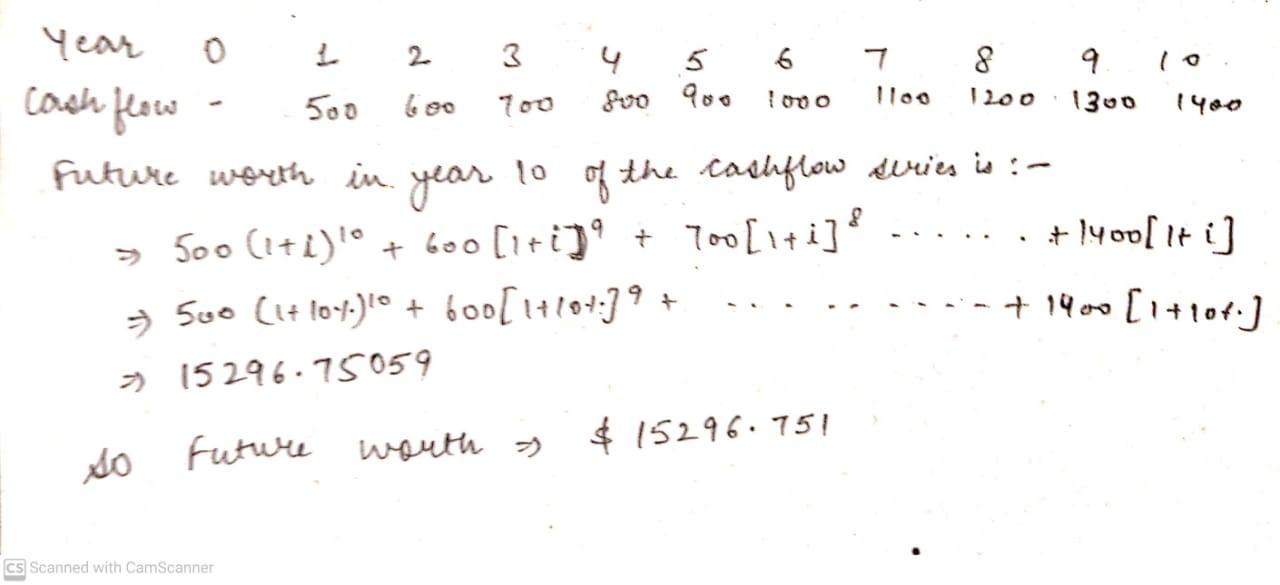 Year 0 1 2 3 4 5 6 7 8 9 10
Cash flow - 500 600 700 800 900 1000 1100 1200 1300 1400
Future worth in year 10 of the cashflow series is :-
⇒ 500 (1+i)¹⁰ + 600 [1+i]⁹ + 700[1+i]⁸ ....... + 1400[1+i]
⇒ 500 (1+10%)¹⁰ + 600[1+10%]⁹ + .......... + 1400 [1+10%]
⇒ 15296.75059
so Future worth ⇒ $ 15296.751
CS Scanned with CamScanner